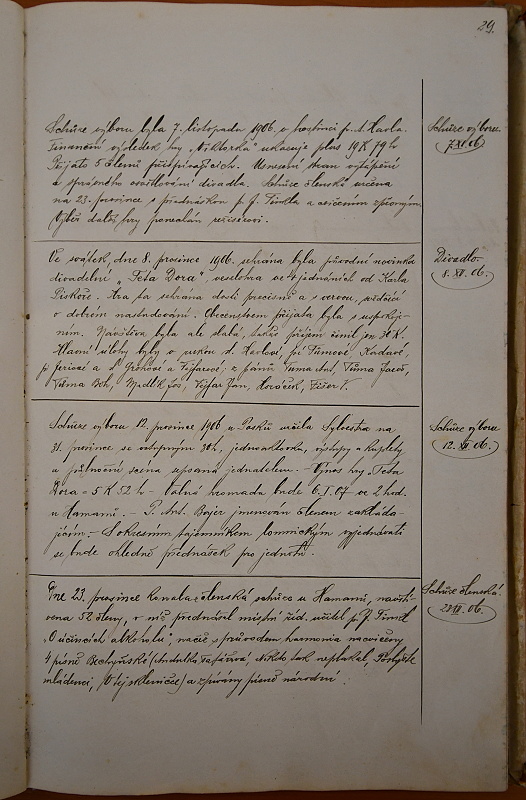 29.
Schůze výboru byla 7. listopadu 1906. v hostinci p. A. Havla.
Finanční výsledek hry „Viktorka" ukazuje plus 19 K 79 h
Přijato 5 členů přispívajících. Usnesení stran vytápění
a správného osvětlování divadla. Schůze členská určena
na 23. prosince s přednáškou p. J. Fimkla a cvičením zpěvným.
Výběr další hry ponechán režisérovi.
Schůze výboru
7.XI.06
Ve svátek, dne 8. prosince 1906. sehrána byla původní novinka
divadelní „Teta Dora", veselohra ve jednáních od Karla
Piskoře. Hra ta sehrána dosti precisně a s vervou, svědčící
o dobrém nastudování. Obecenstvem přijata byla s uspokoje-
ním. Návštěva byla ale slabá, takže příjem činil jen 30 K.
Hlavní úlohy byly v rukou sl. Havlové, pí Tůmové,
a sl. a Fejfarové, z pánů Tůma Ant., Tůma Jaroš,
Tůma Boh., Mydlík Jos., Fejfar Jan, Horáček, Fišer V.
Divadlo.
8. XII. 06.
Schůze výboru 12. prosince 1906 u Pošků určila Sylvestra na
31. prosince se vstupným 30 h, jednoaktovka, výstupy a kuplety
a půlnoční scena sepsaná jednatelem. – Výnos hry „Teta
Dora – 5 K 52 h – Valná hromada bude 6./I. 07 ve 2 hod.
u Hamanů. – P. Ant. Bojer jmenován členem zakláda-
jícím. – S okresním tajemníkem lomnickým vyjednávati
se bude ohledně přednášek pro jednotu.
Schůze výboru
12. XII. 06.
Dne 23. prosince konala členská schůze u Hamanů, navští-
vena 52 členy, v níž přednášel místní říd. učitel p. J. Fimkl
„O účincích alkoholu", načež s průvodem harmonia nacvičeny
4 písně Bechyňské (Andulka šafářová, Nikdo tak neplakal, Poslyšte
mládenci, O tej skleničce) a zpívány písně národní.
Schůze členská.
23.XII. 06.